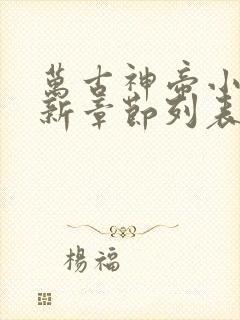 萬古神帝小
新章節列表
楊福